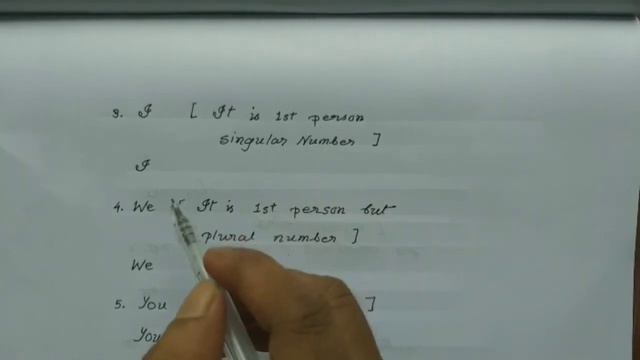 3. I [ It is 1st person
singular Number ]
I
4. We [ It is 1st person but
plural number ]
We
5. You ]
You